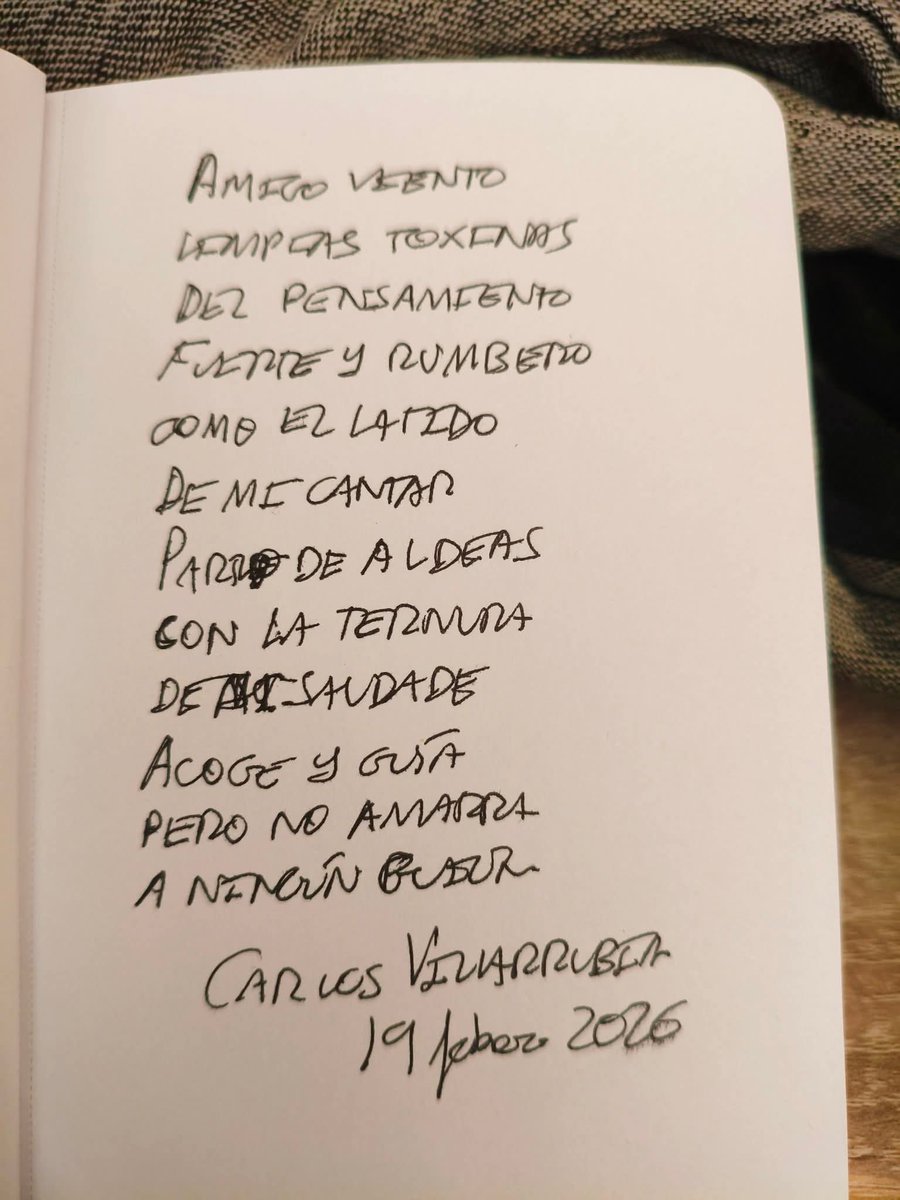 AMIGO VIENTO
LIMPIAS TOXINAS
DEL PENSAMIENTO
FUERTE Y RUMBERO
COMO EL LATIDO
DE MI CANTAR
DE ALDEAS
CON LA TERNURA
DE SAUDADE
ACOGE Y GUÍA
PERO NO AMARRA
A NINGÚN
CARLOS VILLARRUBIA
19 febrero 2026